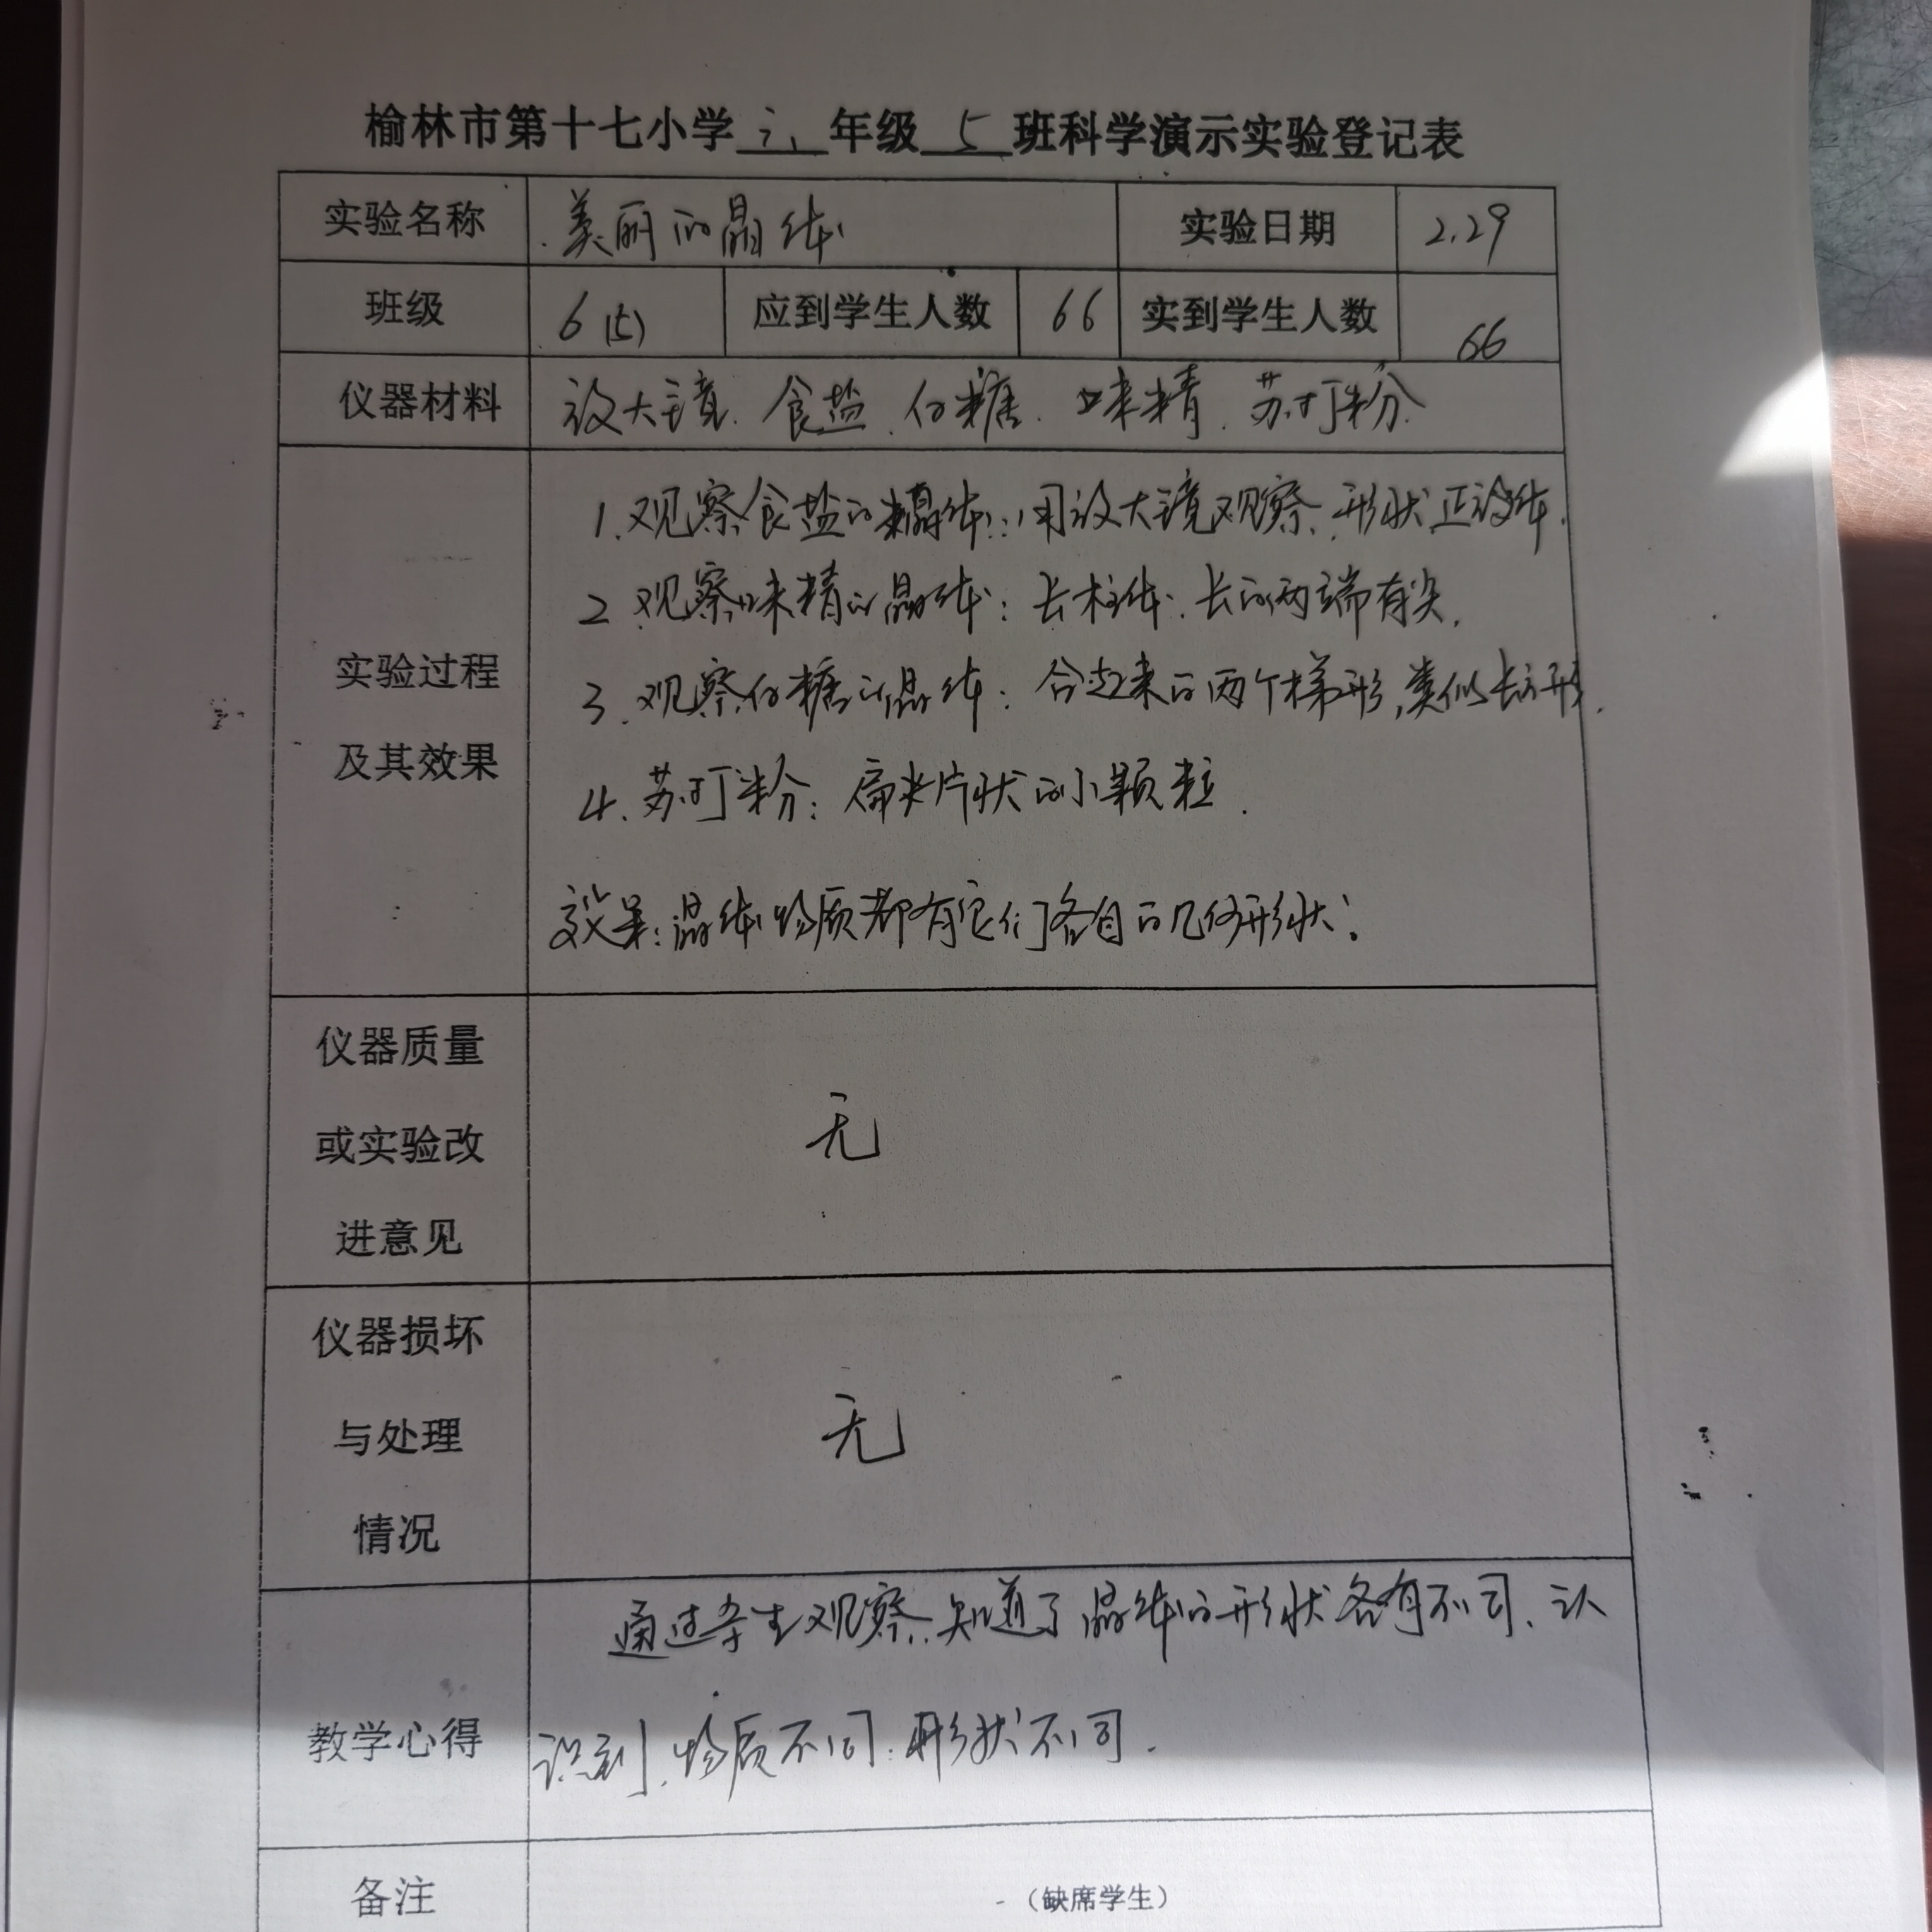 榆林市第十七小学 六 年级 5 班科学演示实验登记表
实验名称 美丽的晶体 实验日期 2.29
班级 6(5) 应到学生人数 66 实到学生人数 66
仪器材料 放大镜. 食盐. 白糖. 味精. 苏打粉.
实验过程
及其效果
1. 观察食盐的晶体: 用放大镜观察, 形状正方体.
2. 观察味精的晶体: 长柱体. 长的两端有尖.
3. 观察白糖的晶体: 合起来的两个梯形, 类似长方形.
4. 苏打粉: 片状的小颗粒.
效果: 晶体物质都有它们各自的几何形状.
仪器质量
或实验改
进意见
无
仪器损坏
与处理
情况
无
教学心得
通过学生观察, 知道了晶体的形状各有不同, 认
识到, 物质不同, 形状不同.
备注 (缺席学生)